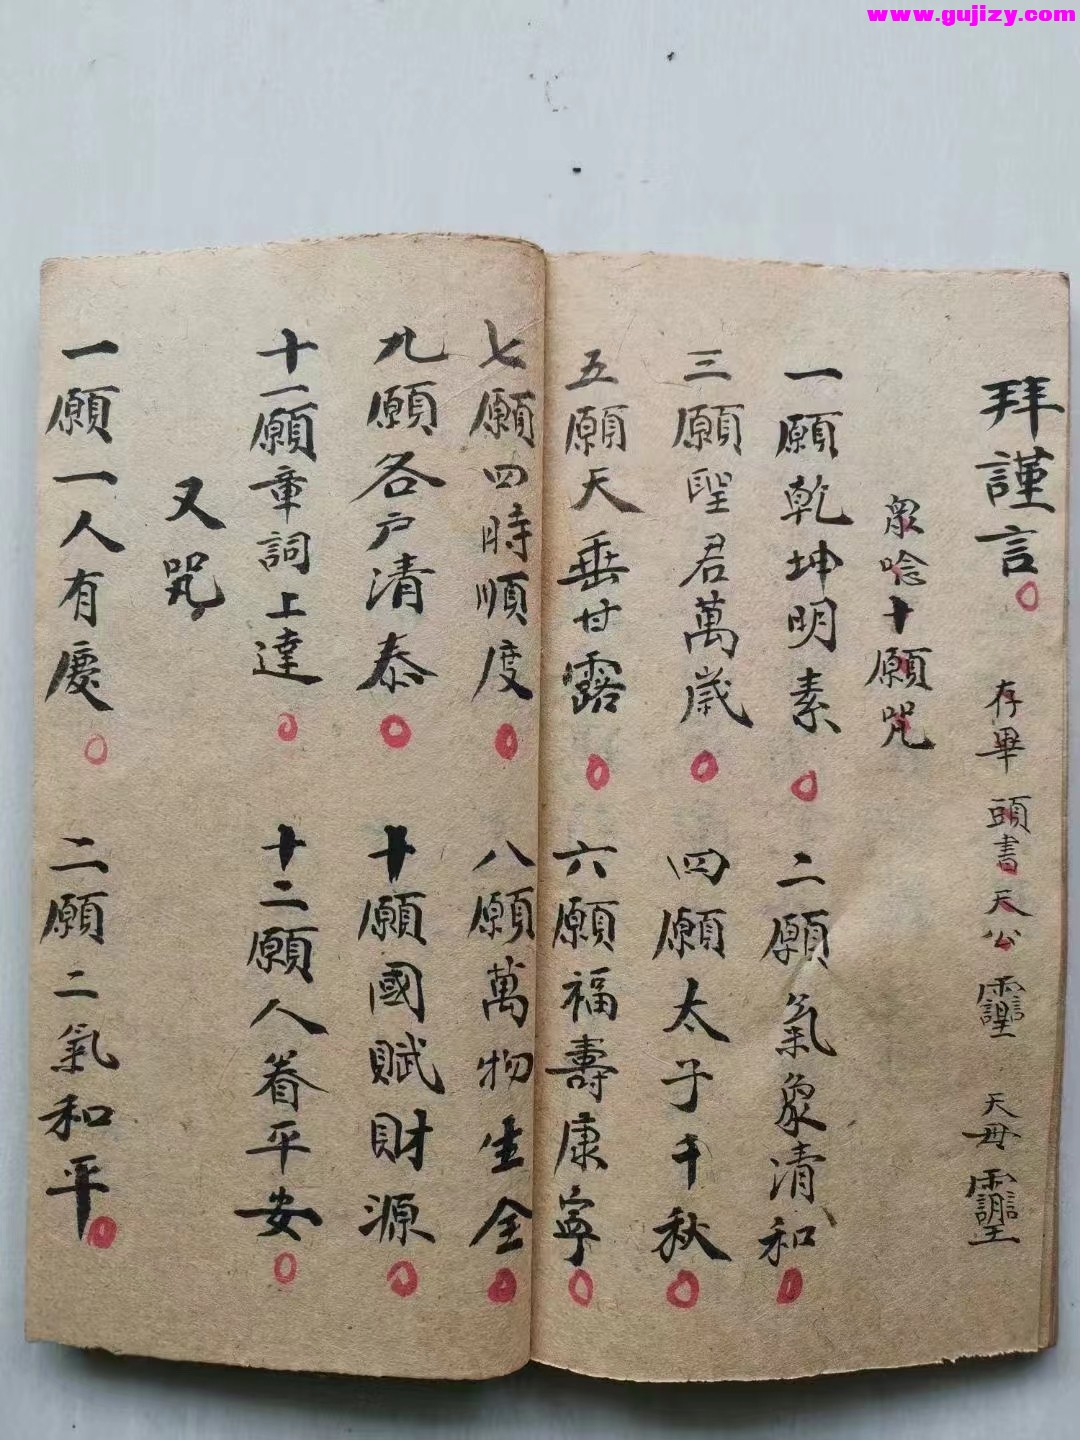 www.gujizy.com
拜謹言 存畢 頭書 天公 天母
眾唸十願咒
一願乾坤明素 二願氣象清和
三願聖君萬歲 四願太子千秋
五願天垂甘露 六願福壽康寧
七願四時順度 八願萬物生全
九願各户清泰 十願國賦財源
十一願章詞上達 十二願人眷平安
又咒
一願一人有慶 二願二氣和平